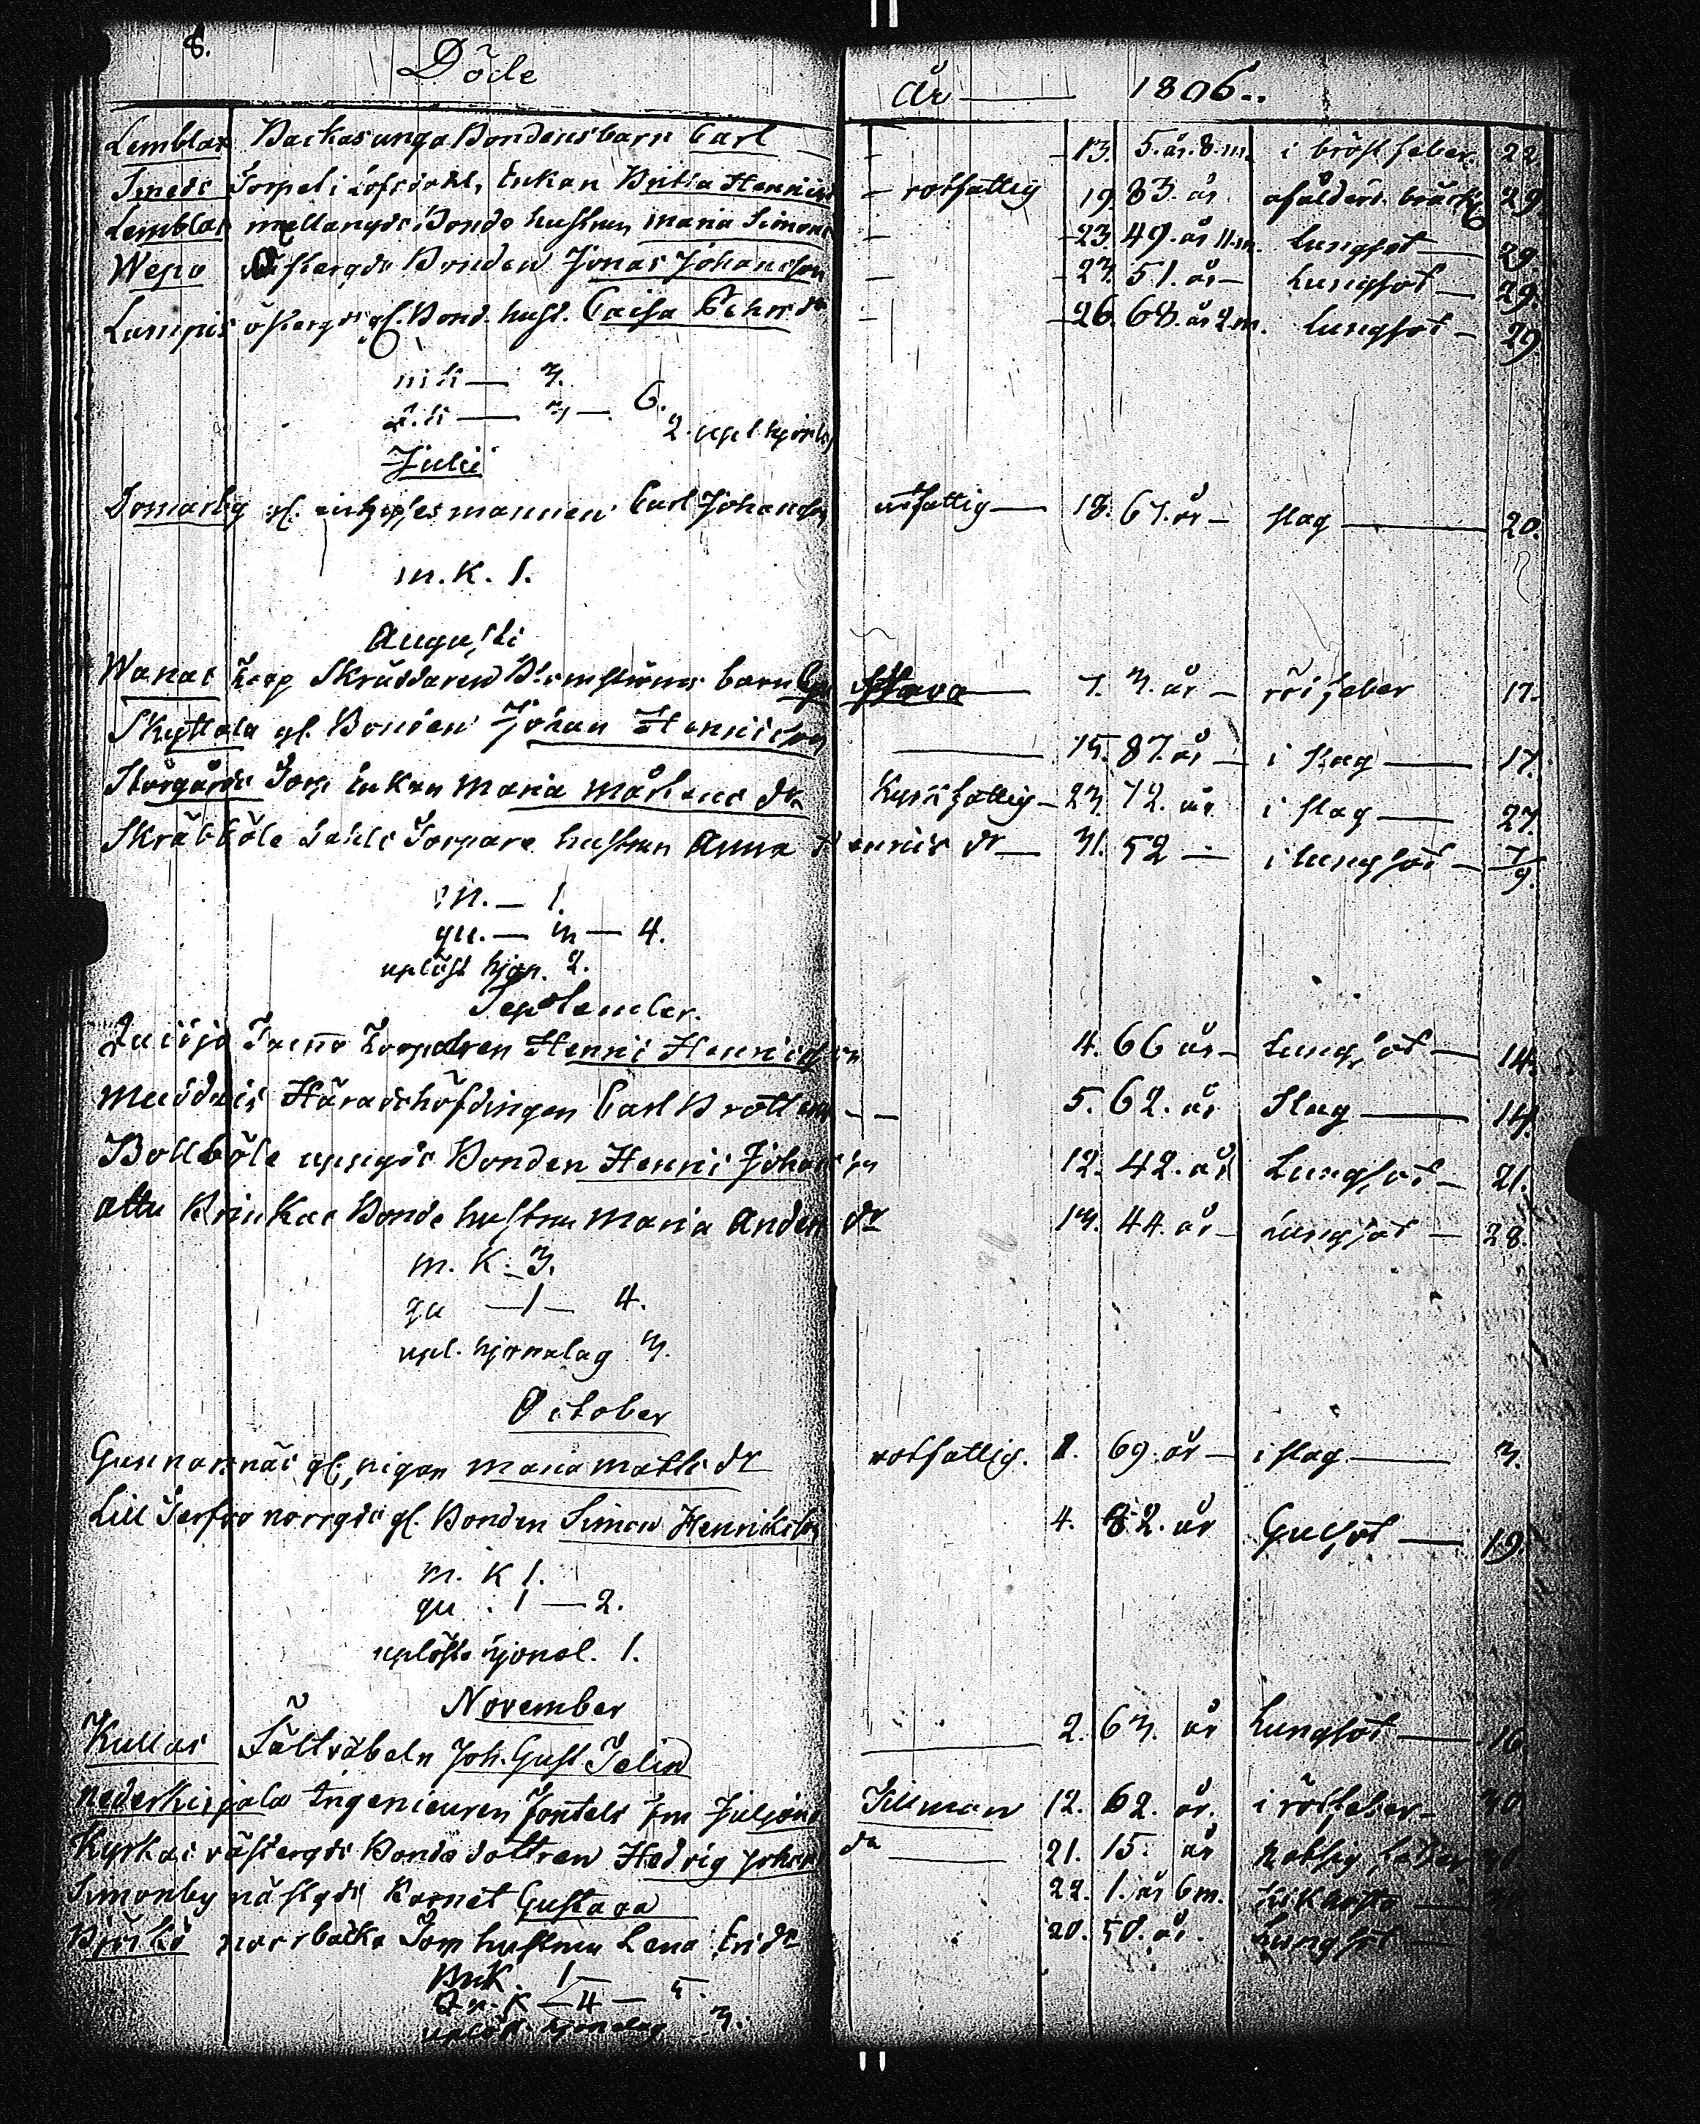 8.
Döde År 1806.
Lemblax Backas unga Bondens barn Carl 13. 5. år. 8. m. i bröst feber 22
Smeds Torpet i Löfsdahl, Enkan Britta Henrics rotfattig 19. 83. år ålderd. bräck 29.
Lemblax mellangds Bonde hustrun Maria Simons 23. 49. år 11. m. Lungsot 29.
Wepo västergds Bonden Jonas Johansson 23. 51. år Lungsot 29.
Lampis östergds gl. Bond. hust. Caisa dr 26. 68. år 2. m. Lungsot 29.
3.
3 — 6.
2. upl. hjonlg
Julii
Domarby gl. mannen Carl Johanss rotfattig 18. 67. år slag 20.
m. K. 1.
Augusti
Wanas Torp Skräddaren Blomströms barn Gustava 7. 3. år röt feber 17.
Skyttala gl. Bonden Johan Henricson 15. 87. år i slag 17.
Storgårds Torp Enkan Maria Mårtens dr Kyrkfattig 23. 72. år i slag 27.
Skräbböle Dahls Torpare hustrun Anna Henrics dr 31. 52 i lungsot 7/9.
m. — 1.
qu. — 3 — 4.
uplöst hjon. 2.
September.
Torparen Henric Henricsson 4. 66 år Lungsot 14.
Muddais Häradshöfdingen Carl 5. 62. år Slag 14.
Bollböle uppgds Bonden Henric Johansson 12. 42. år Lungsot 21.
Attu Brinkas Bonde hustrun Maria Anders dr 13. 44. år Lungsot 28.
m. K. 3.
qu — 1 — 4.
upl. hjonalag 3.
October
Gunnarsnäs gl. pigan Maria Matts dr rotfattig. 1. 69. år i slag 3.
Lill Terfvo norrgds gl. Bonden Simon Henriksson 4. 82. år Gulsot 19.
m. K 1.
qu. 1 — 2.
uplöst hjonal. 1.
November
Kullas Fältväbeln Joh. Gust 2. 63. år Lungsot 16.
Nederkirjala Ingenieuren Tillman 12. 62. år. i rötfeber 30.
Kyrkas västergds Bonde dottren Hedvig Johans dr 21. 15. år feber 30.
Simonby Gustava 22. 1. år 6 m. Kikhosta
Björkö norrbacka Torp hustrun Lena Erics dr 20. 50. år. Lungsot
M.K. 1
Qv. K — 4 — 5.
uplöst hjonalag 3.